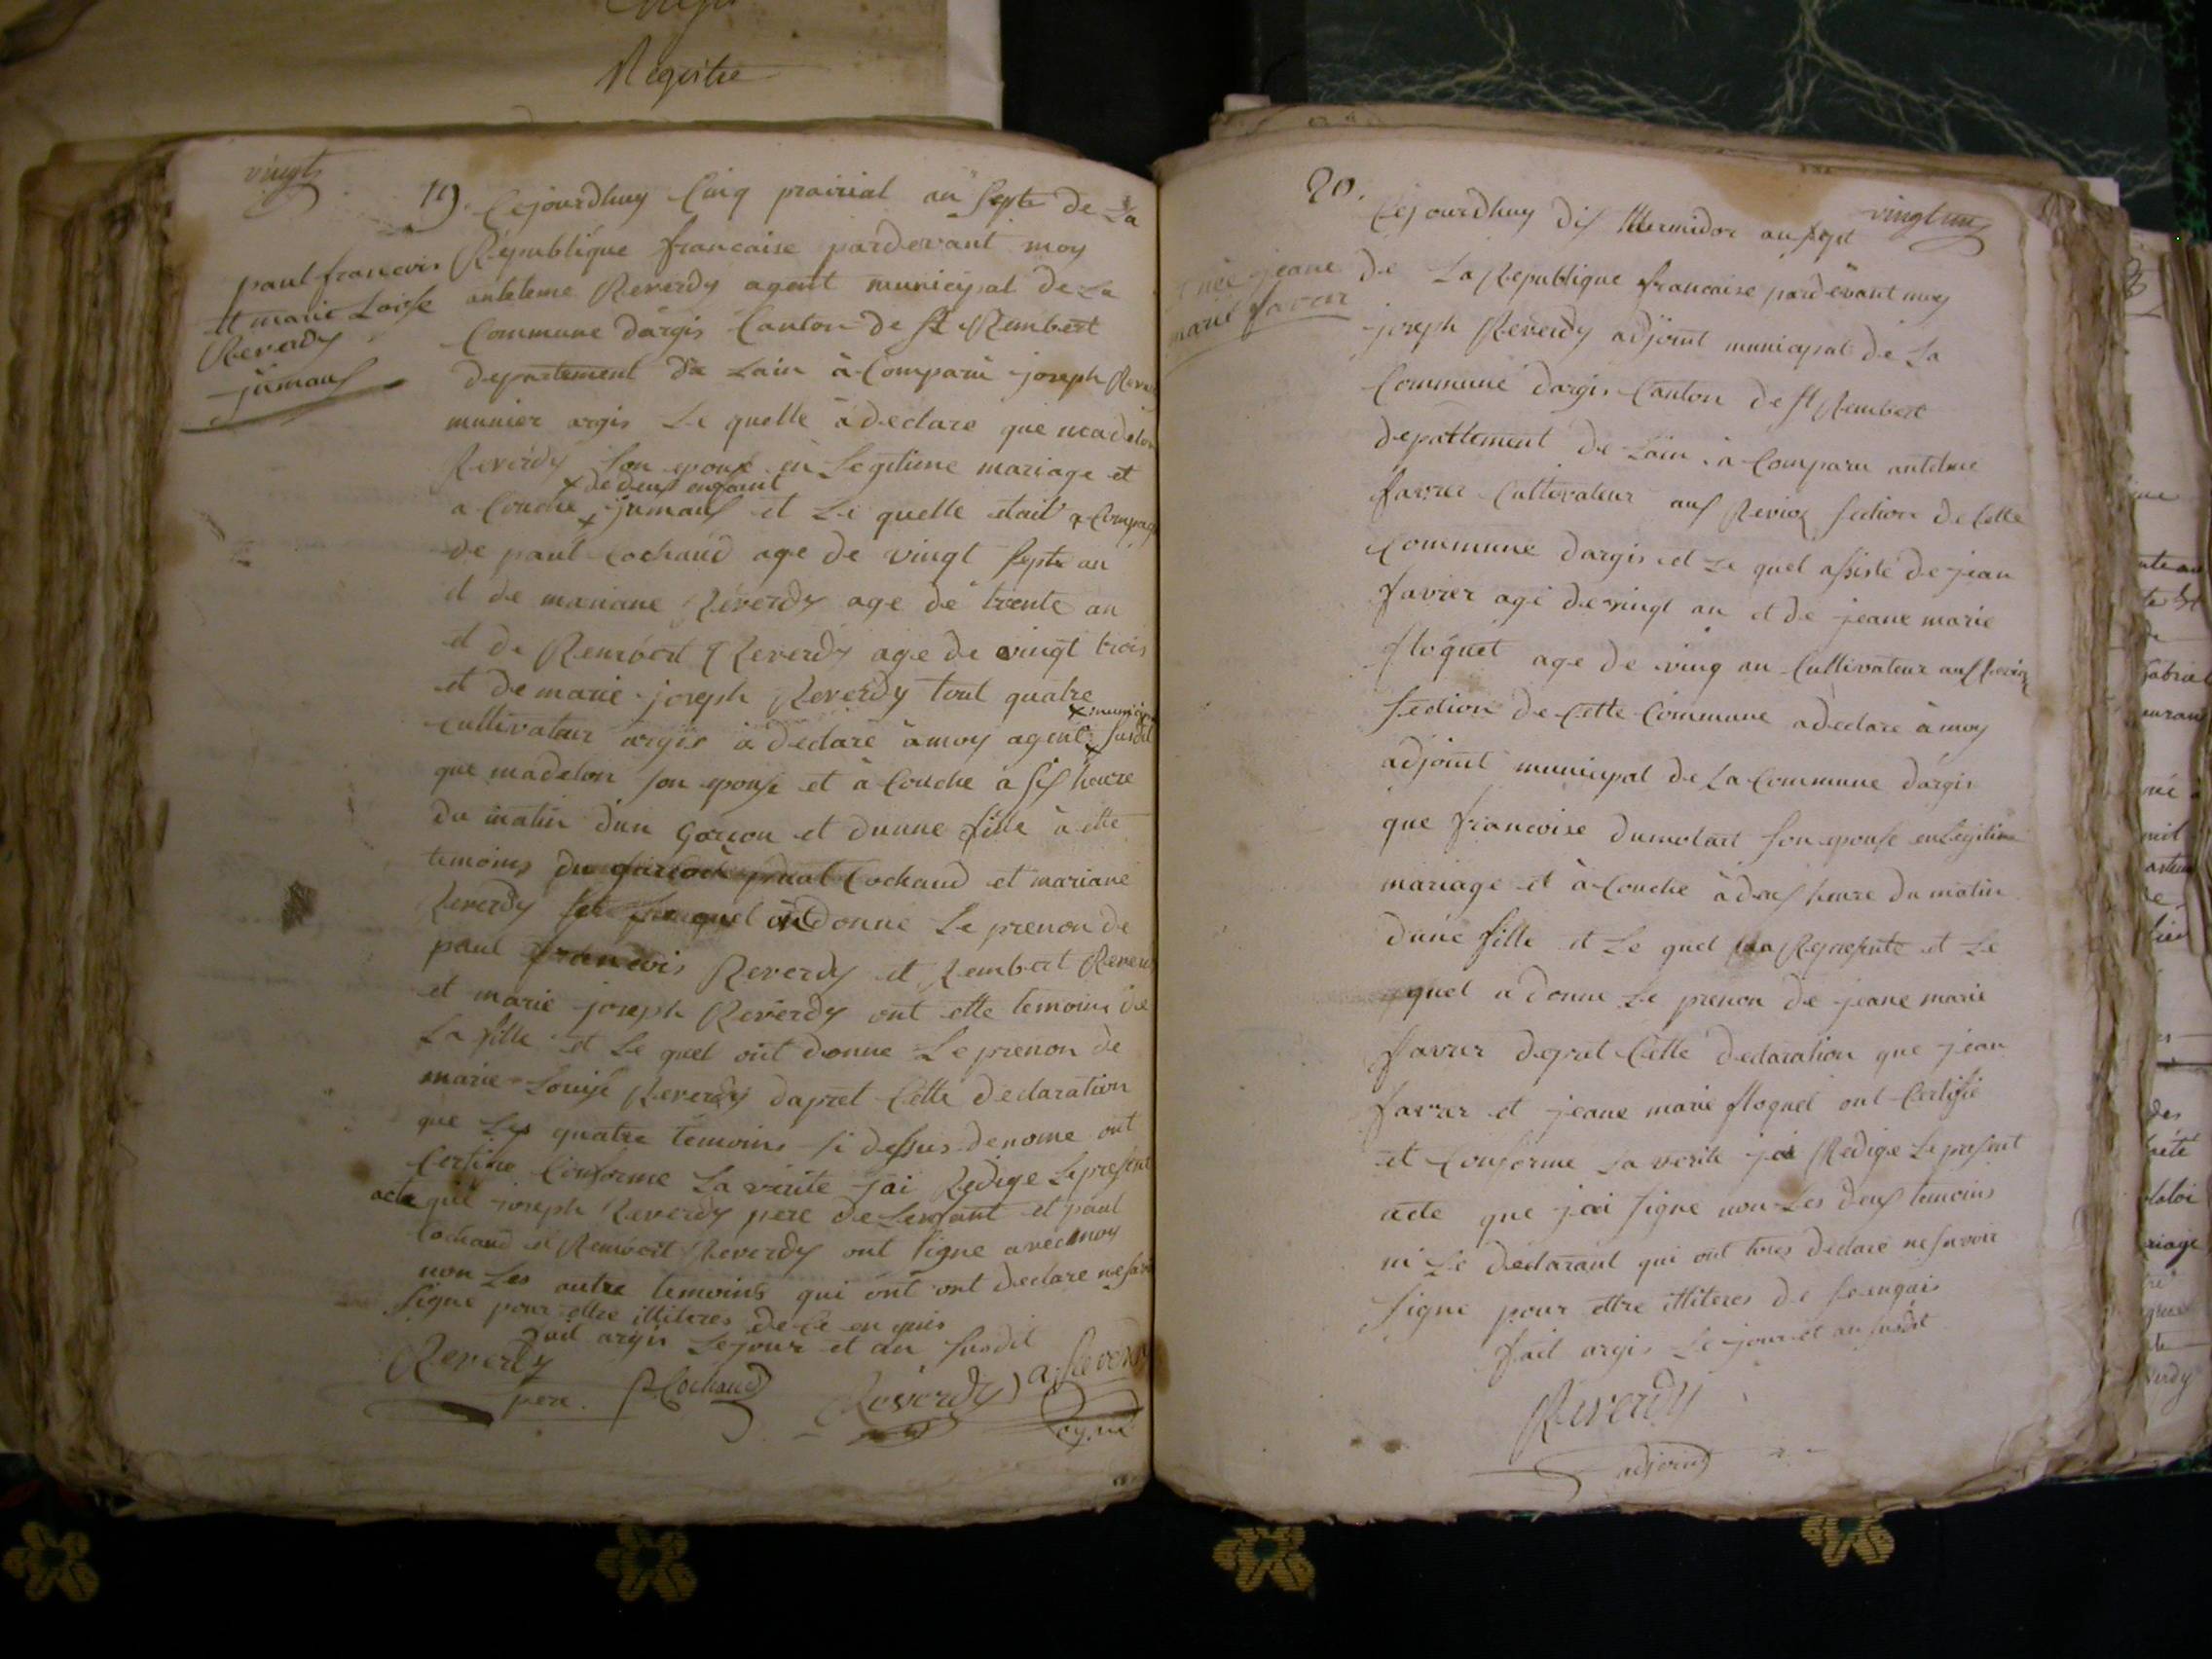 Registre
vingt
19. Cejourdhuy Cinq prairial an Septe de La
Republique francaise pardevant moy
anteleme Reverdy agent municipal de La
Commune dargis Canton de St Rembert
departement de Lain à Comparu joseph
munier argis Le quelle à declare que madelon
Reverdy Son epouse en Legitime mariage et
x de deux enfant
a Couche x jumaux et Le quelle etait
de paul Cochaud age de vingt Septe an
et de mariane Reverdy age de trente an
et de Rembert Reverdy age de vingt trois
et de marie joseph Reverdy tout quatre
Cultivateur argis à declaré à moy agent x susdit
que madelon son epouse et à Couche à six heure
du matin dun Garcon et dunne fille à ette
temoins Cochaud et mariane
Reverdy quel ont donné Le prenon de
paul francois Reverdy et Rembert
et marie joseph Reverdy ont ette temoins de
La fille et Le quel ont donne Le prenon de
marie Louise Reverdy dapret Cette declaration
que Les quatre temoins si dessus denome ont
Certifie Conforme La vérite jai Redige Le present
acte que joseph Reverdy pere de Lenfant et paul
Cochaud et Rembert Reverdy ont signe avec moy
non Les autre temoins qui ont ont declare
signe pour ettre illiteres de ce en quis
fait argis Le jour et an susdit
Reverdy
pere. P Cochaud Reverdy a. Reverdy
paul francois
et marie Loise
Reverdy
jumaux
20.
vingt un
Cejourdhuy dix thermidor an sept
de La Republique francaise pardevant moy
joseph Reverdy adjoint municipal de La
Commune dargis Canton de St Rembert
departement de Lain à Comparu antelme
favrer Cultivateur aux section de Cette
Commune dargis et Le quel assisté de jean
favrer age de vingt an et de jeane marie
floquet age de ving an Cultivateur aux
section de Cette Commune a declare à moy
adjoint municipal de La Commune dargis
que francoise dumolart son epouse en Legitime
mariage et à Couche à deux heure du matin
dune fille et Le quel Represente et Le
quel a donne Le prenon de jeane marie
favrer depret Cette declaration que jean
favrer et jeane marie floquet ont Certifie
et Conforme La verite jai Redige Le present
acte que jai signe non Les deux temoins
ni Le declarant qui ont tous declaré ne savoir
signe pour ettre illiteres de se enquis
fait argis Le jour et an susdit
Reverdy
adjoint
née jeane
marie favrer